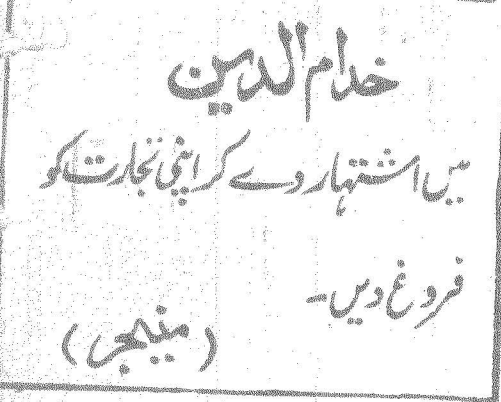 خدام الدین
میں اشتہار دے کر اپنی تجارت کو
فروغ دیں۔
(منیجر)